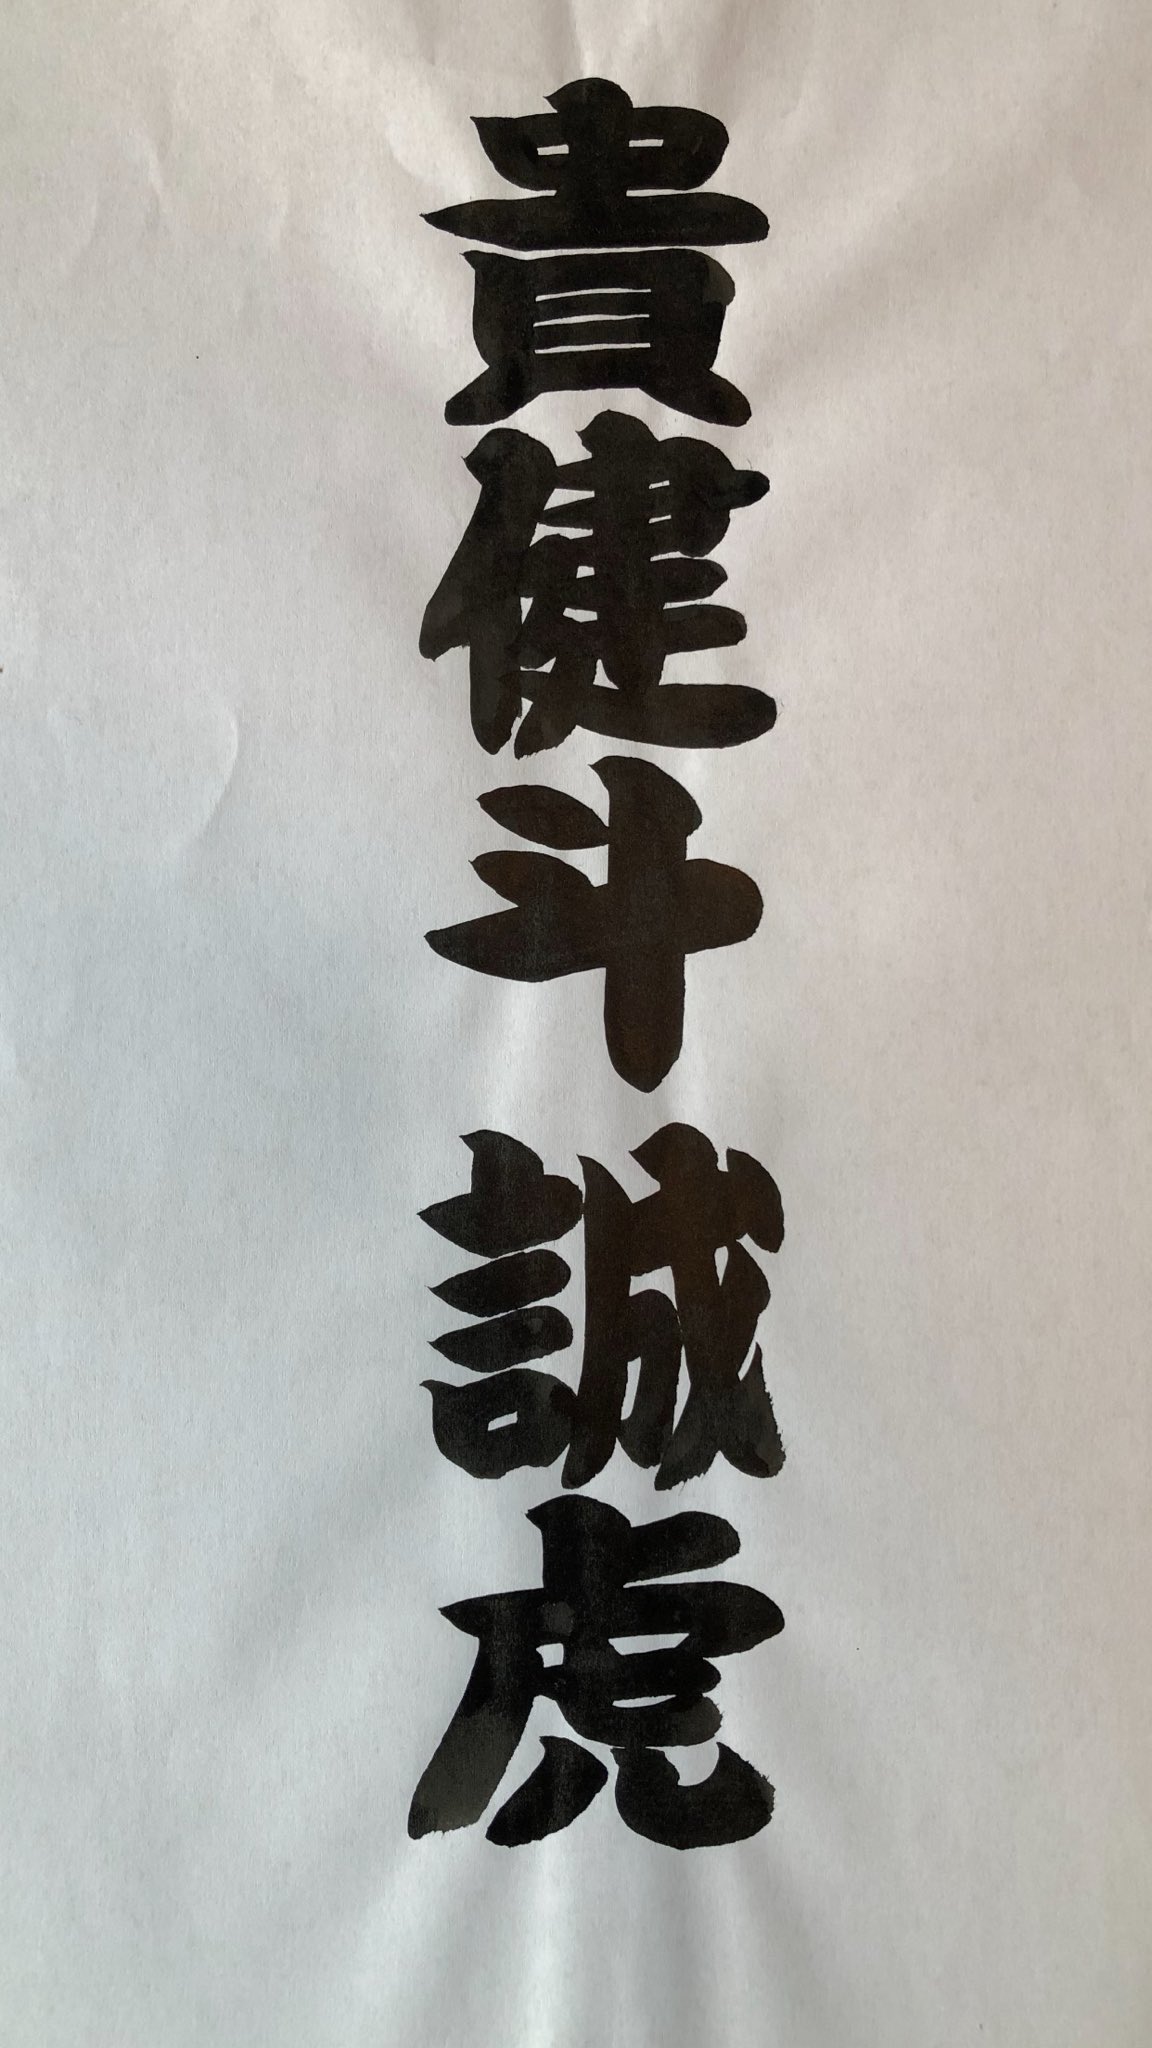 貴健斗誠虎